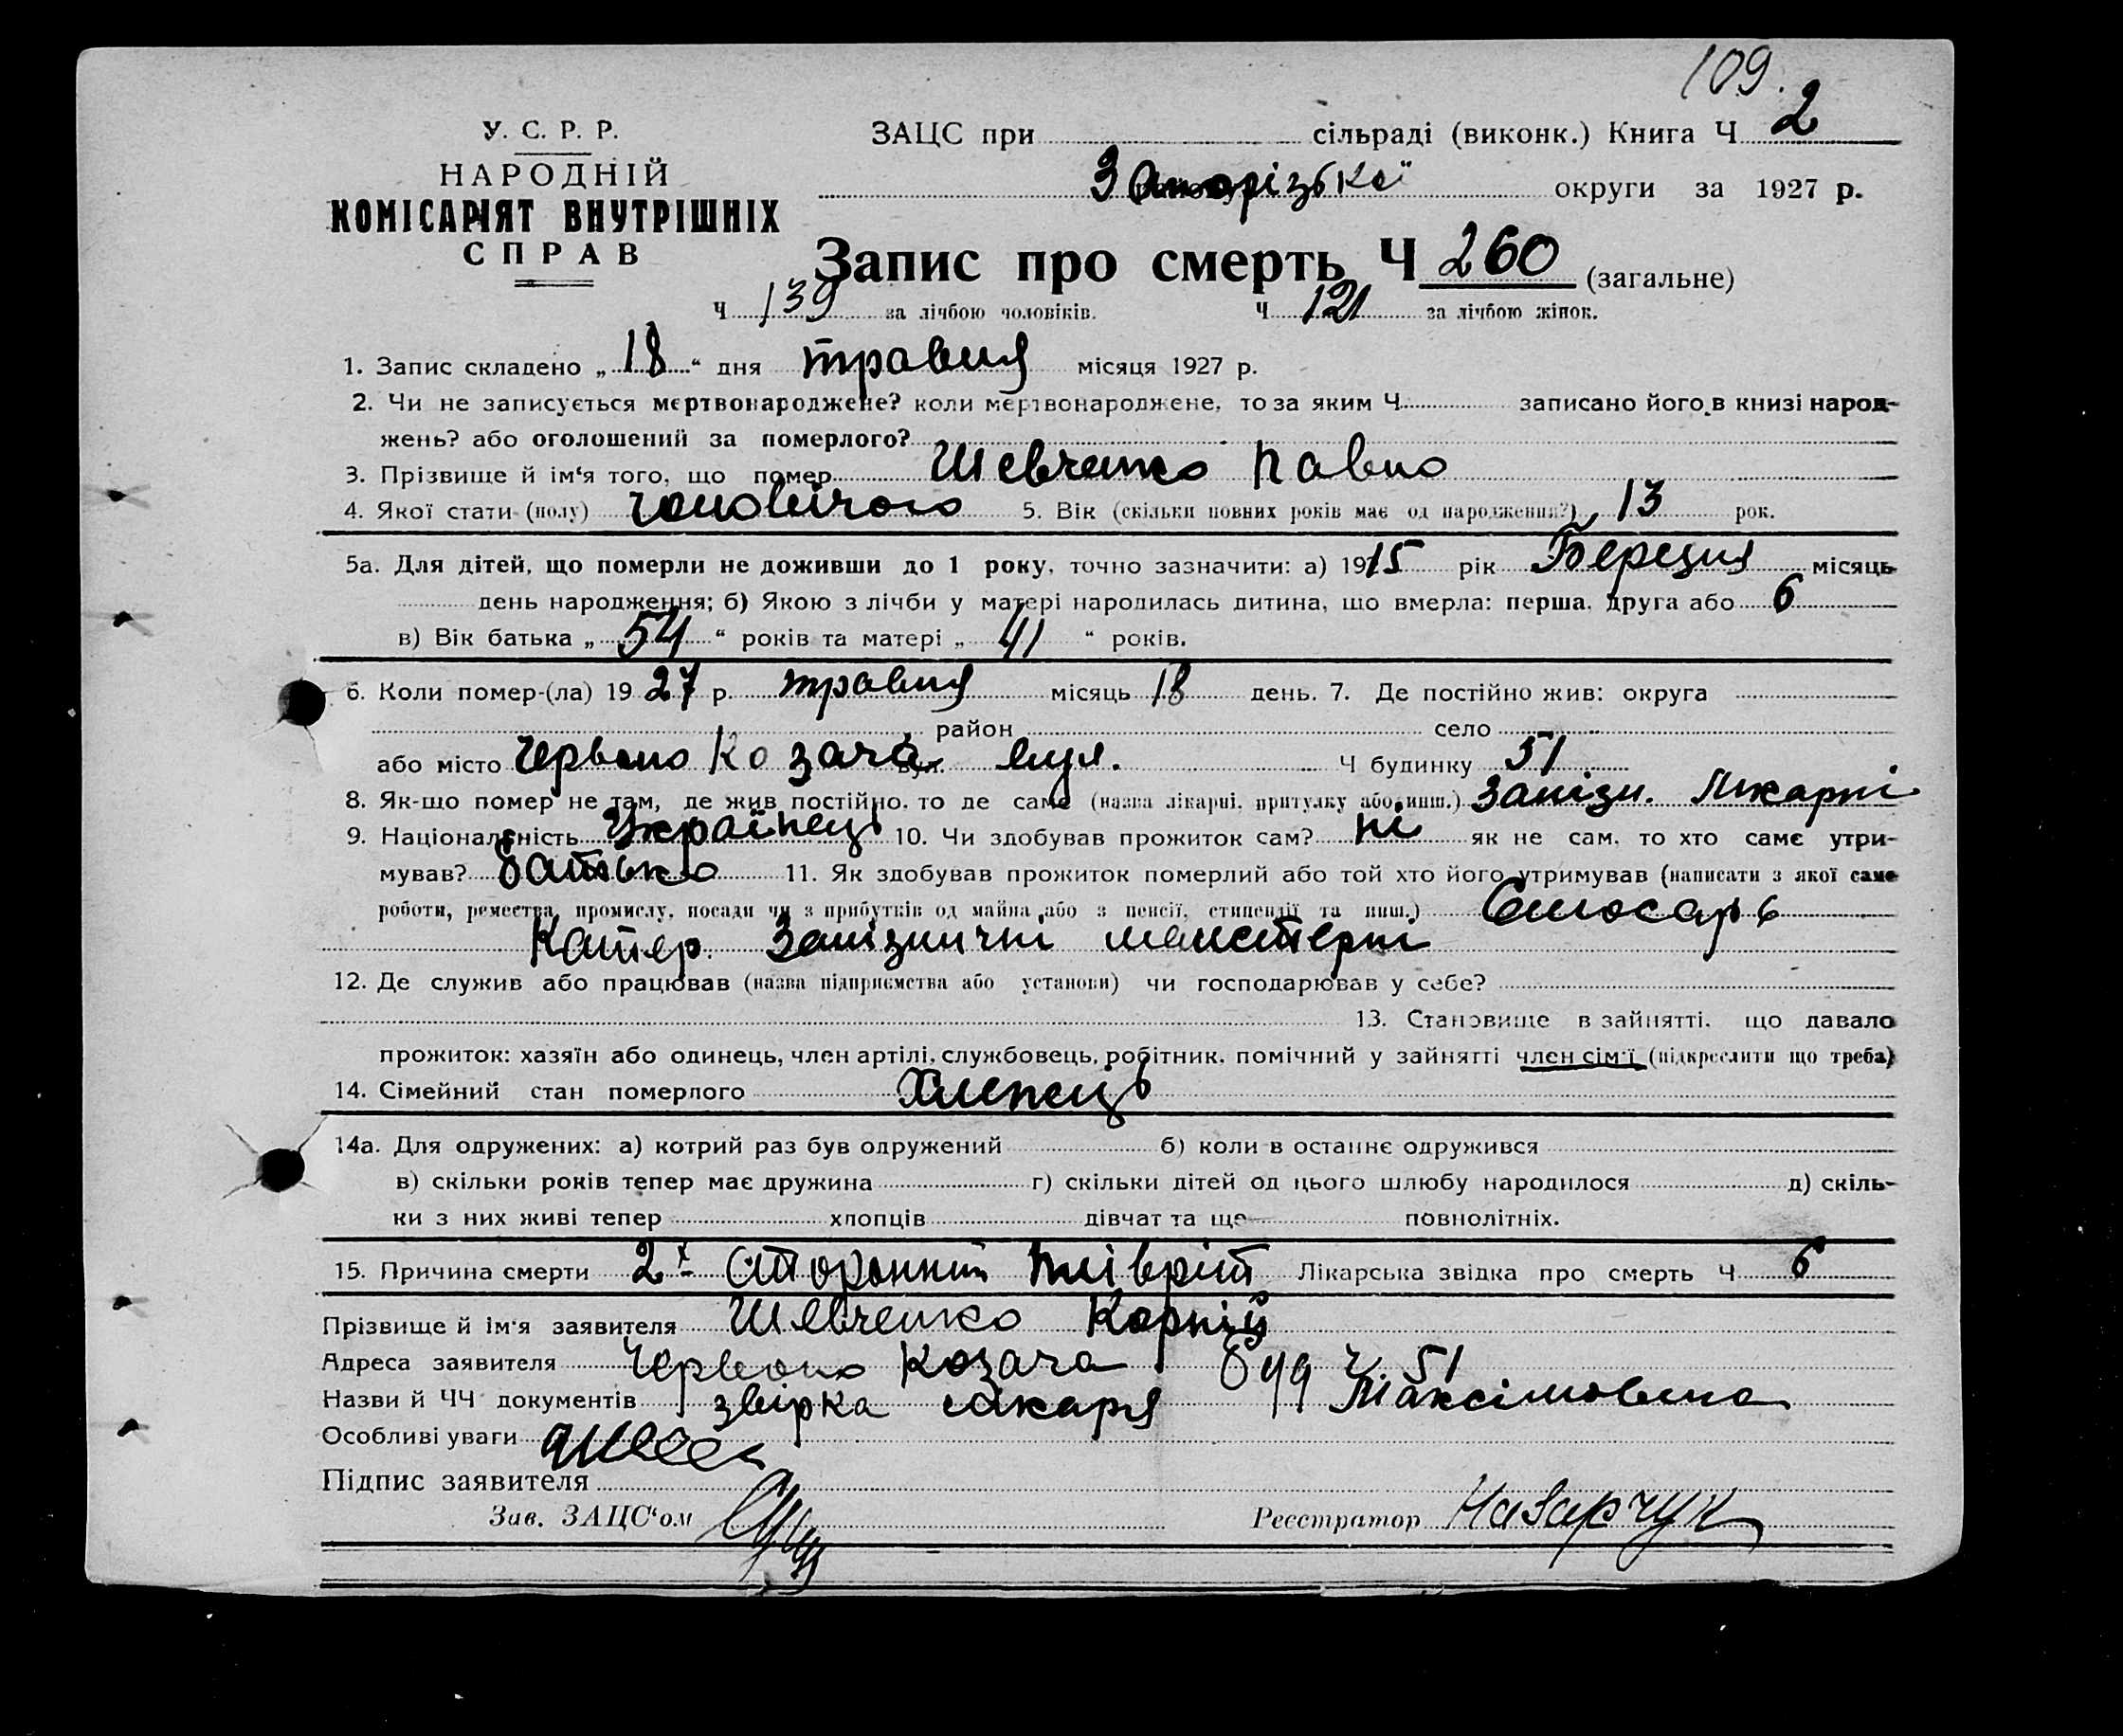 109.
У. С. Р. Р.
НАРОДНІЙ
КОМІСАРІЯТ ВНУТРІШНІХ
СПРАВ
ЗАЦС при сільраді (виконк.) Книга Ч 2
Запорізької округи за 1927 р.
Запис про смерть Ч 260 (загальне)
Ч 139 за лічбою чоловіків. Ч 121 за лічбою жінок.
1. Запис складено „ 18 “ дня травня місяця 1927 р.
2. Чи не записується мертвонароджене? коли мертвонароджене, то за яким Ч. записано його в книзі народ-
жень? або оголошений за померлого?
3. Прізвище й ім‘я того, що помер Шевченко Павло
4. Якої стати (полу) чоловічого 5. Вік (скільки повних років має од народження?) 13 рок.
5а. Для дітей, що померли не доживши до 1 року, точно зазначити: а) 1915 рік Березня місяць
день народження; б) Якою з лічби у матері народилась дитина, що вмерла: перша, друга або 6
в) Вік батька „ 54 “ років та матері „ 41 “ років.
6. Коли помер-(ла) 19 27 р. травня місяць 18 день. 7. Де постійно жив: округа
район село
або місто Червоно Козача вул. вул. Ч будинку 51
8. Як-що помер не там, де жив постійно, то де саме (назва лікарні, притулку або инш.) Залізн. Лікарні
9. Національність Українець 10. Чи здобував прожиток сам? ні як не сам, то хто саме утри-
мував? батько 11. Як здобував прожиток померлий або той хто його утримував (написати з якої саме
роботи, ремества, промислу, посади чи з прибутків од майна або з пенсії, стипендії та инш.) Слюсарь
Катер. Залізничні майстерні
12. Де служив або працював (назва підприємства або установи) чи господарював у себе?
13. Становище в зайнятті, що давало
прожиток: хазяїн або одинець, член артілі, службовець, робітник, помічний у зайнятті член сім‘ї (підкреслити що треба)
14. Сімейний стан померлого Хлопець
14а. Для одружених: а) котрий раз був одружений б) коли в останнє одружився
в) скільки років тепер має дружина г) скільки дітей од цього шлюбу народилося д) скіль-
ки з них живі тепер хлопців дівчат та ще повнолітніх.
15. Причина смерти 2х сторонний плівріт Лікарська звідка про смерть Ч 6
Прізвище й ім‘я заявителя Шевченко Корній
Адреса заявителя Червоно Козача буд ч 51
Назви й ЧЧ документів звірка лікаря Максімовича
Особливі уваги
Підпис заявителя
Зав. ЗАЦС‘ом Реєстратор Назарчук